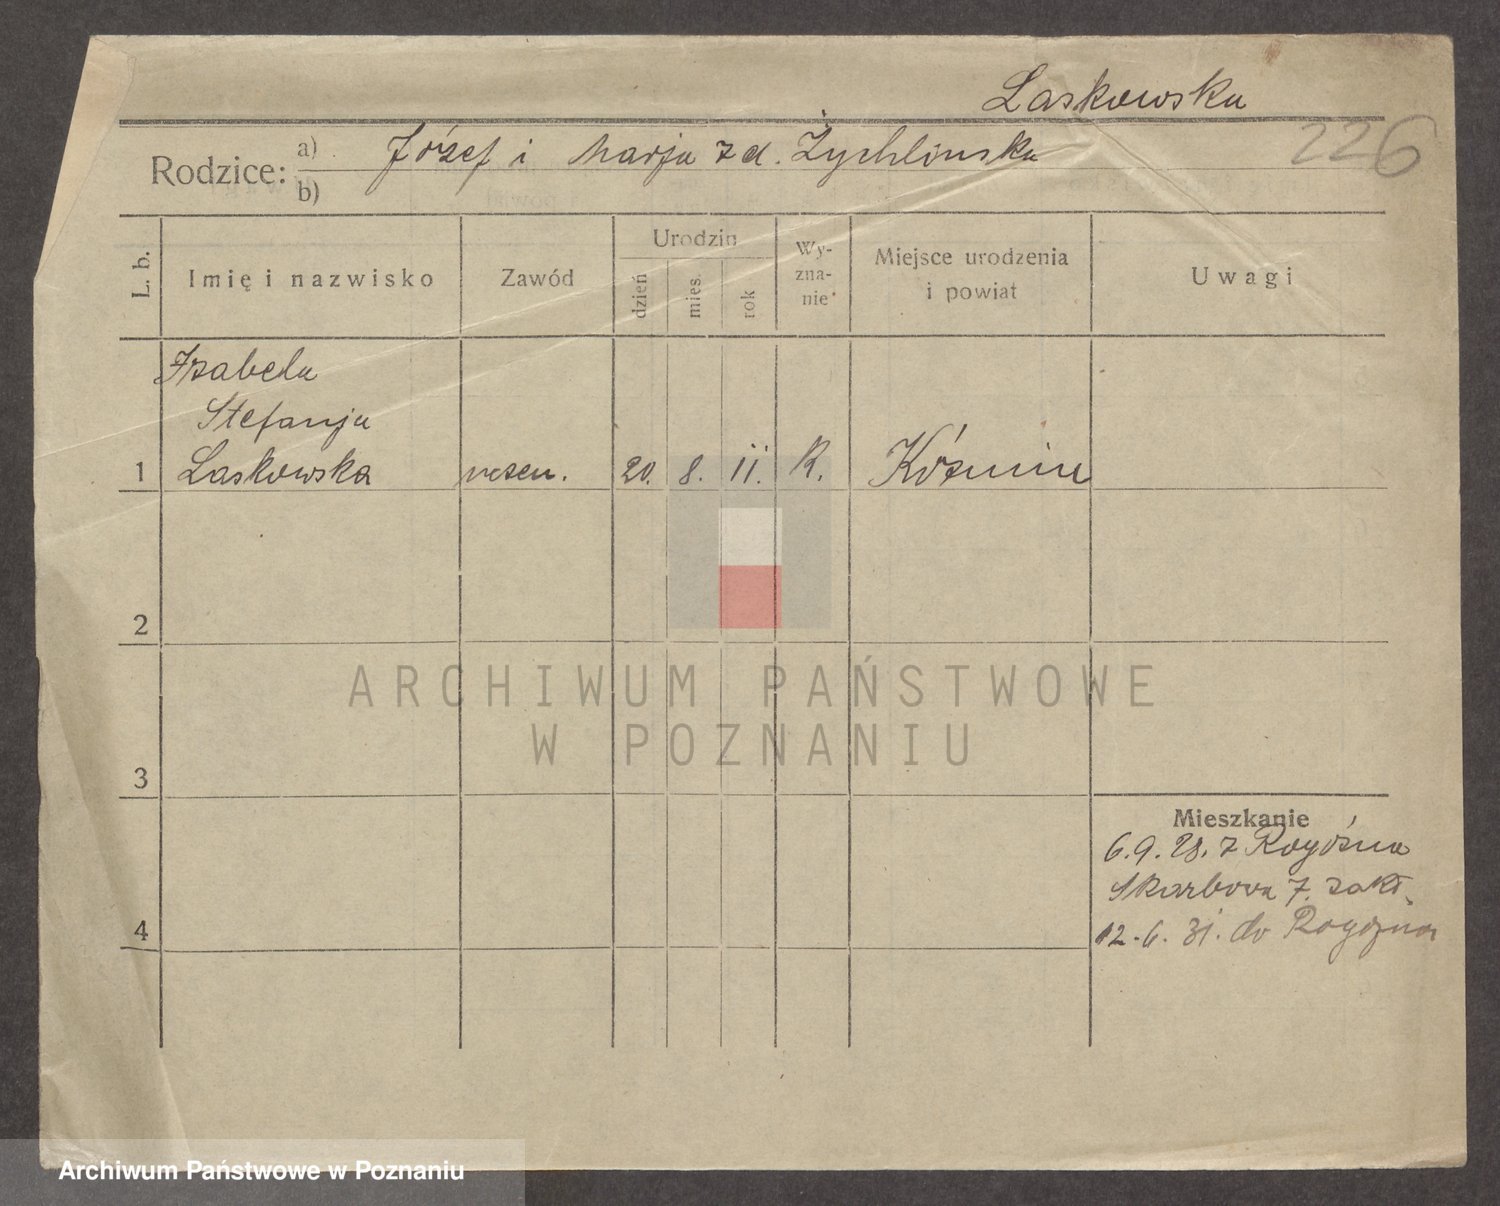 Laskowska
226
Rodzice:
a) Józef i Marja z d. Żychlinska
b)
L. b.
Imię i nazwisko
Zawód
Urodzin
dzień
mies.
rok
Wy-
zna-
nie
Miejsce urodzenia
i powiat
Uwagi
Izabela
Stefanja
1 Laskowska uczen. 20. 8. 11. R. Kózmin
2
3
4
Mieszkanie
6.9.28. z Rogóźna
Skarbowa 7. zakł.
12.6.31. do Rogózna
ARCHIWUM PAŃSTWOWE
W POZNANIU
Archiwum Państwowe w Poznaniu